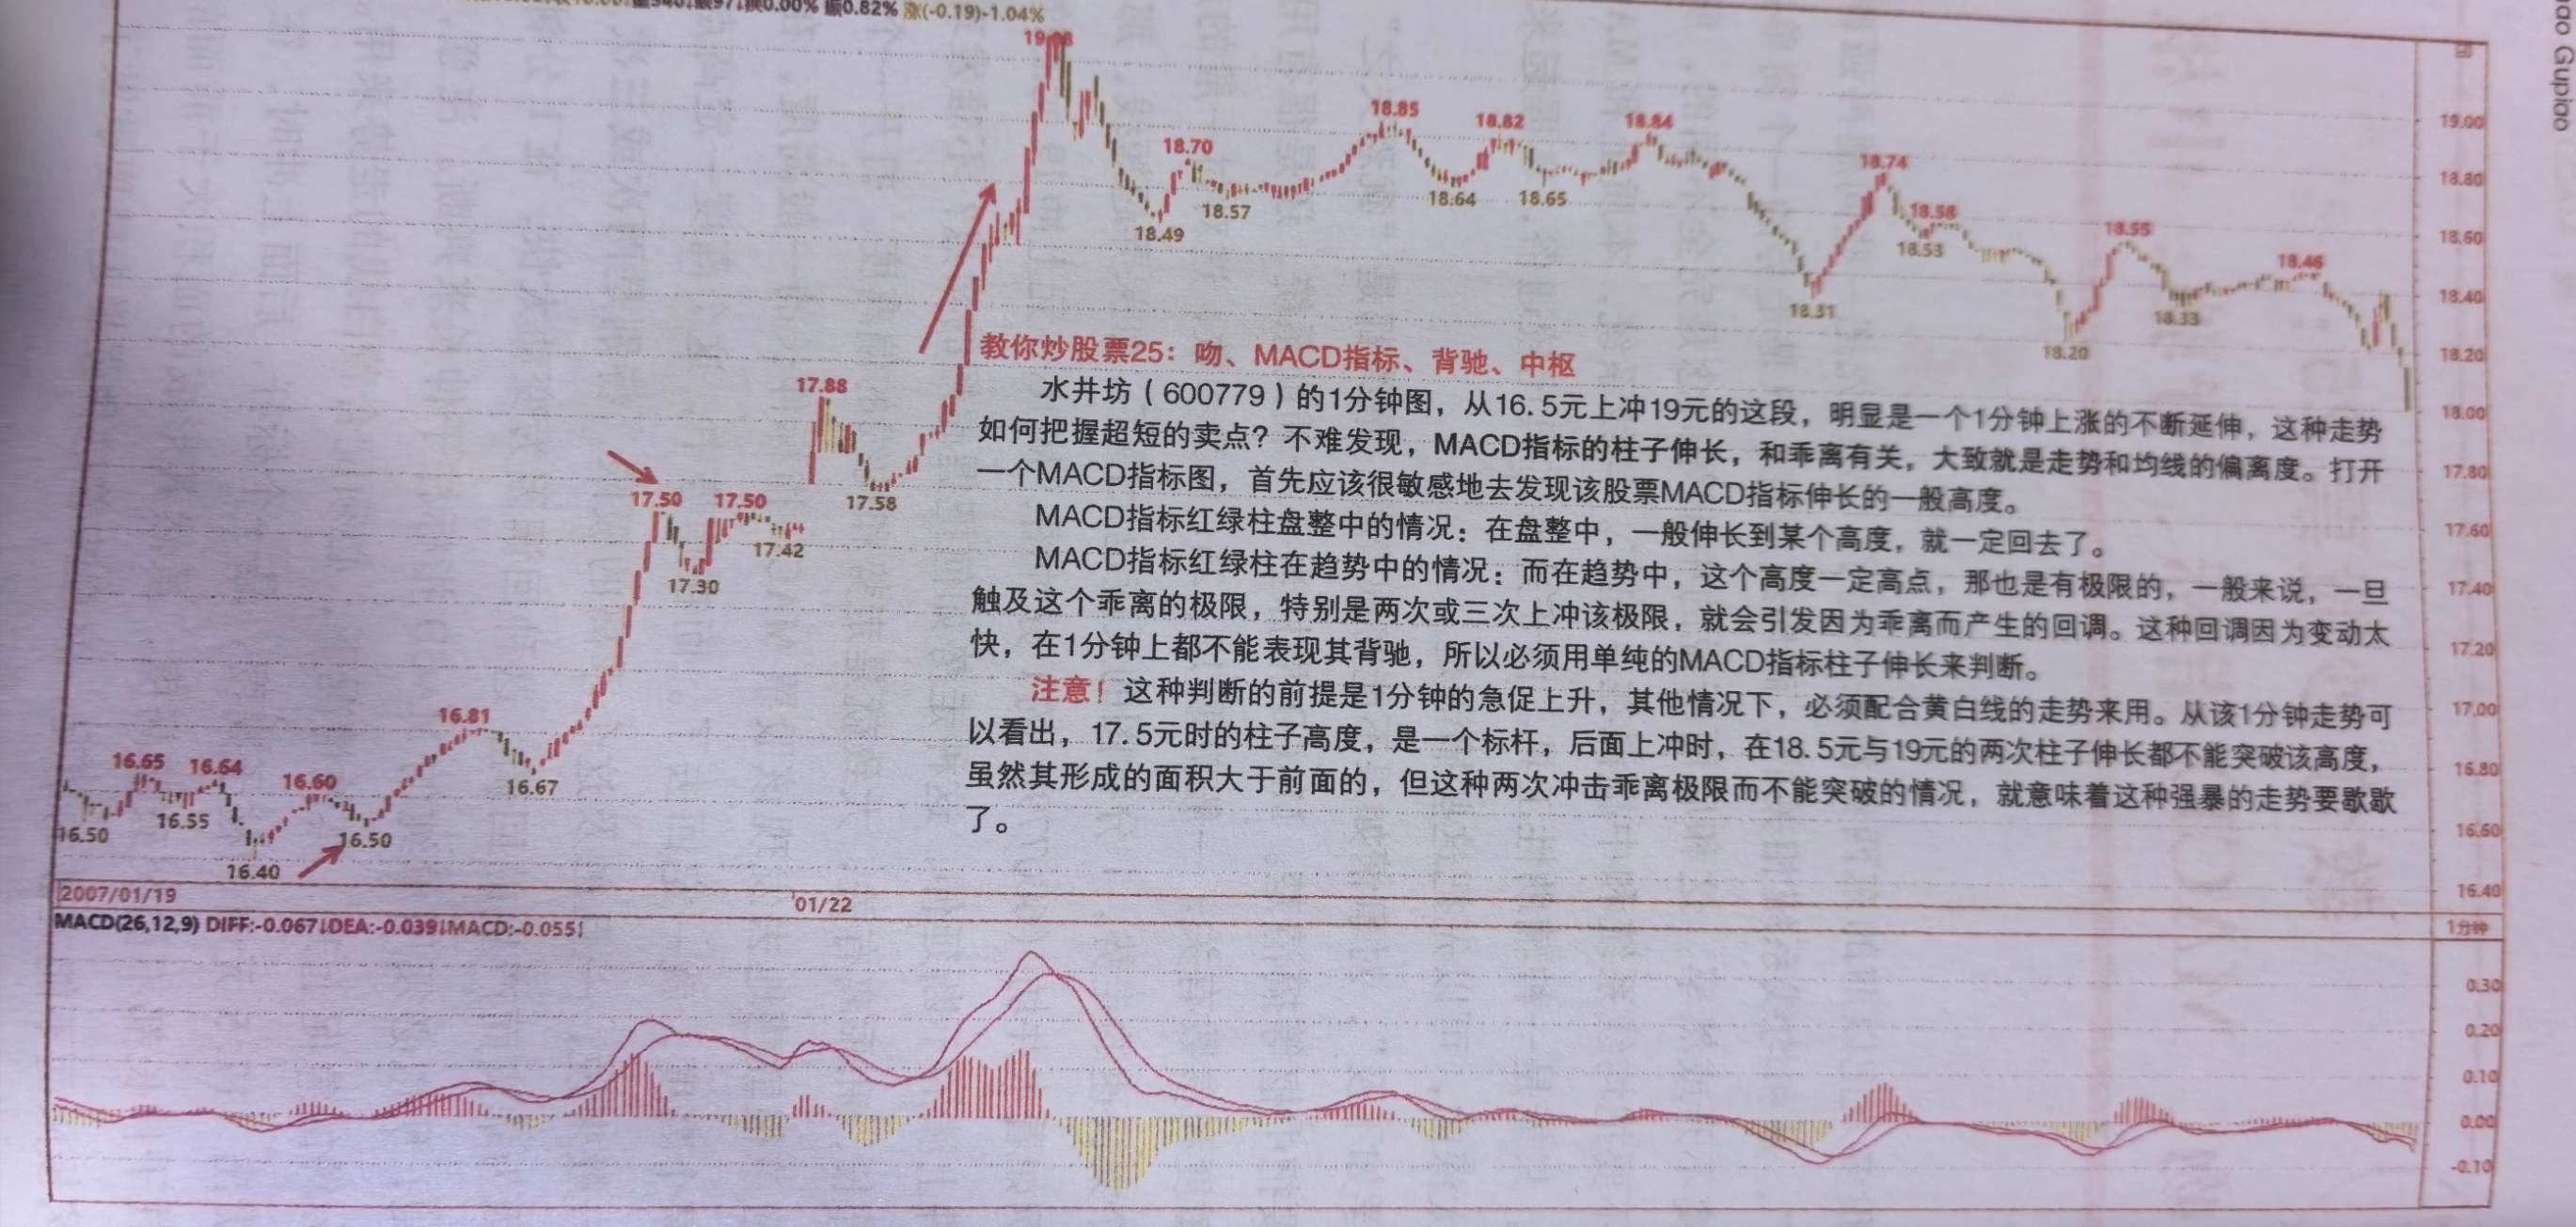 振0.82% 涨(-0.19)-1.04%
Gupiao
18.85
18.82
18.84
18.70
18.74
18.64
18.65
18.57
18.58
18.49
18.53
18.55
18.46
18.31
18.33
18.20
17.88
17.58
17.50
17.50
17.42
17.30
16.81
16.67
16.65
16.64
16.60
16.50
16.55
16.50
16.40
教你炒股票25：吻、MACD指标、背驰、中枢
水井坊（600779）的1分钟图，从16.5元上冲19元的这段，明显是一个1分钟上涨的不断延伸，这种走势
如何把握超短的卖点？不难发现，MACD指标的柱子伸长，和乖离有关，大致就是走势和均线的偏离度。打开
一个MACD指标图，首先应该很敏感地去发现该股票MACD指标伸长的一般高度。
MACD指标红绿柱盘整中的情况：在盘整中，一般伸长到某个高度，就一定回去了。
MACD指标红绿柱在趋势中的情况：而在趋势中，这个高度一定高点，那也是有极限的，一般来说，一旦
触及这个乖离的极限，特别是两次或三次上冲该极限，就会引发因为乖离而产生的回调。这种回调因为变动太
快，在1分钟上都不能表现其背驰，所以必须用单纯的MACD指标柱子伸长来判断。
注意！这种判断的前提是1分钟的急促上升，其他情况下，必须配合黄白线的走势来用。从该1分钟走势可
以看出，17.5元时的柱子高度，是一个标杆，后面上冲时，在18.5元与19元的两次柱子伸长都不能突破该高度，
虽然其形成的面积大于前面的，但这种两次冲击乖离极限而不能突破的情况，就意味着这种强暴的走势要歇歇
了。
19.00
18.80
18.60
18.40
18.20
18.00
17.80
17.60
17.40
17.20
17.00
16.80
16.60
16.40
2007/01/19
01/22
1分钟
MACD(26,12,9) DIFF:-0.067↓DEA:-0.039↓MACD:-0.055↓
0.30
0.20
0.10
0.00
-0.10